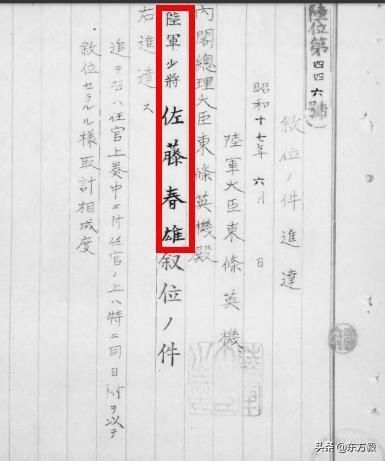 陸位第四四六號
敘位ノ件進達
昭和十七年六月 日
陸軍大臣東條英機
內閣總理大臣東條英機殿
陸軍少將佐藤春雄敘位ノ件
右進達ス
追テ右ハ任官上奏中ニ付任官ノ上ハ特ニ同日附ヲ以テ
敘位セラルル樣取計相成度
头条 @东方毅